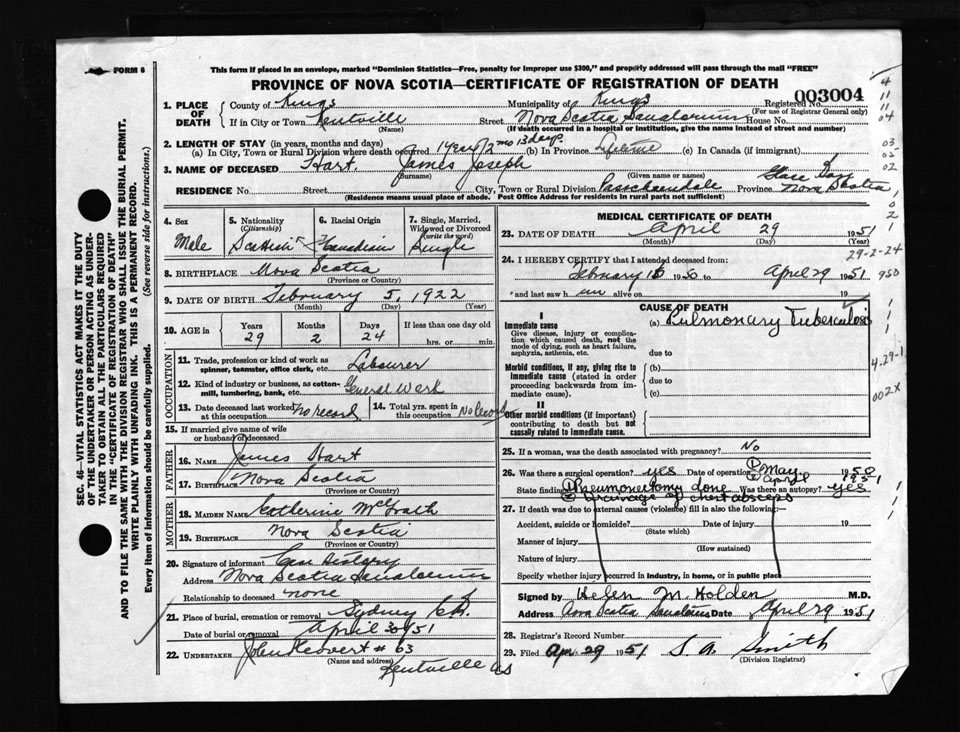 FORM 6
This form if placed in an envelope, marked "Dominion Statistics—Free, penalty for improper use $300," and properly addressed will pass through the mail "FREE"
PROVINCE OF NOVA SCOTIA—CERTIFICATE OF REGISTRATION OF DEATH
003004
1. PLACE OF DEATH
County of Kings
Municipality of Kings
Registered No.
(For use of Registrar General only)
If in City or Town Kentville
(Name)
Street Nova Scotia Sanatorium House No.
(If death occurred in a hospital or institution, give the name instead of street and number)
2. LENGTH OF STAY (in years, months and days)
(a) In City, Town or Rural Division where death occurred 1 year 2 mo 13 days (b) In Province Lifetime (c) In Canada (if immigrant)
3. NAME OF DECEASED Hart, James Joseph
(Surname) (Given name or names)
RESIDENCE No. Street City, Town or Rural Division Passchendaele Glace Bay Province Nova Scotia
(Residence means usual place of abode. Post Office Address for residents in rural parts not sufficient)
4. Sex
Male
5. Nationality
(Citizenship)
Scottish
6. Racial Origin
Canadian
7. Single, Married, Widowed or Divorced
(write the word)
Single
8. BIRTHPLACE Nova Scotia
(Province or Country)
9. DATE OF BIRTH February 5, 1922
(Month) (Day) (Year)
10. AGE in
Years Months Days If less than one day
29 2 24 hrs. or min.
OCCUPATION
11. Trade, profession or kind of work as spinner, teamster, office clerk, etc. Labourer
12. Kind of industry or business, as cotton-mill, lumbering, bank, etc. General Work
13. Date deceased last worked at this occupation No record
14. Total yrs. spent in this occupation No record
15. If married give name of wife or husband of deceased
FATHER
16. Name James Hart
17. Birthplace Nova Scotia
(Province or Country)
MOTHER
18. Maiden Name Catherine McGrath
19. Birthplace Nova Scotia
(Province or Country)
20. Signature of informant
Address Nova Scotia Sanatorium
Relationship to deceased none
21. Place of burial, cremation or removal Sydney
Date of burial or removal April 30/51
22. UNDERTAKER # 63
(Name and address)
Kentville NS
MEDICAL CERTIFICATE OF DEATH
23. DATE OF DEATH April 29 1951
(Month) (Day) (Year)
24. I HEREBY CERTIFY that I attended deceased from:
February 16 1950 April 29 1951
and last saw h im alive on 19
CAUSE OF DEATH
I
Immediate cause (a) Pulmonary Tuberculosis
Give disease, injury or complication which caused death, not the mode of dying, such as heart failure, asphyxia, asthenia, etc.
due to
Morbid conditions, if any, giving rise to immediate cause (stated in order proceeding backwards from immediate cause).
(b)
due to
(c)
II
Other morbid conditions (if important) contributing to death but not causally related to immediate cause.
25. If a woman, was the death associated with pregnancy? No
26. Was there a surgical operation? yes Date of operation ① May 1950
② April 1951
State findings ① Pneumonectomy done Was there an autopsy? yes
② drainage of chest abscess
27. If death was due to external causes (violence) fill in also the following:—
Accident, suicide or homicide? Date of injury 19
(State which)
Manner of injury
(How sustained)
Nature of injury
Specify whether injury occurred in industry, in home, or in public place
Signed by Helen M. Holden M.D.
Address Nova Scotia Sanatorium Date April 29 1951
28. Registrar's Record Number
29. Filed Apr 29 1951 Smith
(Division Registrar)
SEC. 46—VITAL STATISTICS ACT MAKES IT THE DUTY
OF THE UNDERTAKER OR PERSON ACTING AS UNDERTAKER TO OBTAIN ALL THE PARTICULARS REQUIRED
IN THE "CERTIFICATE OF REGISTRATION OF DEATH"
AND TO FILE THE SAME WITH THE DIVISION REGISTRAR WHO SHALL ISSUE THE BURIAL PERMIT.
WRITE PLAINLY WITH UNFADING INK. THIS IS A PERMANENT RECORD.
Every item of information should be carefully supplied. (See reverse side for instructions.)
4
11
11
04
03
02
29-2-24
950
4-29-1
002X